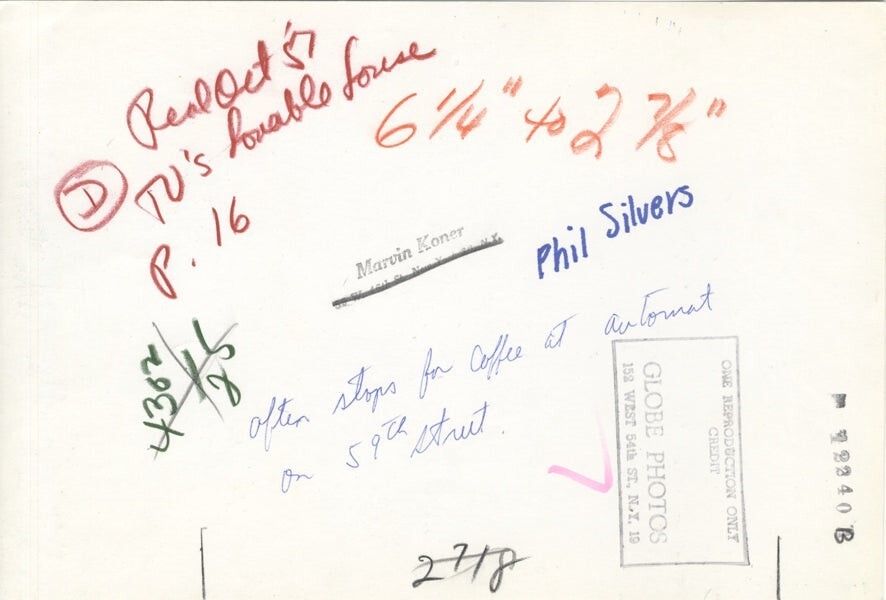 Real Oct '57
D
TV's Lovable Louse
P. 16
6 1/4" to 2 7/8"
Marvin Koner
Phil Silvers
4302
25
often stops for coffee at automat
on 59th street.
ONE REPRODUCTION ONLY
CREDIT
GLOBE PHOTOS
152 WEST 54th ST., N.Y. 19
12240 B
2718